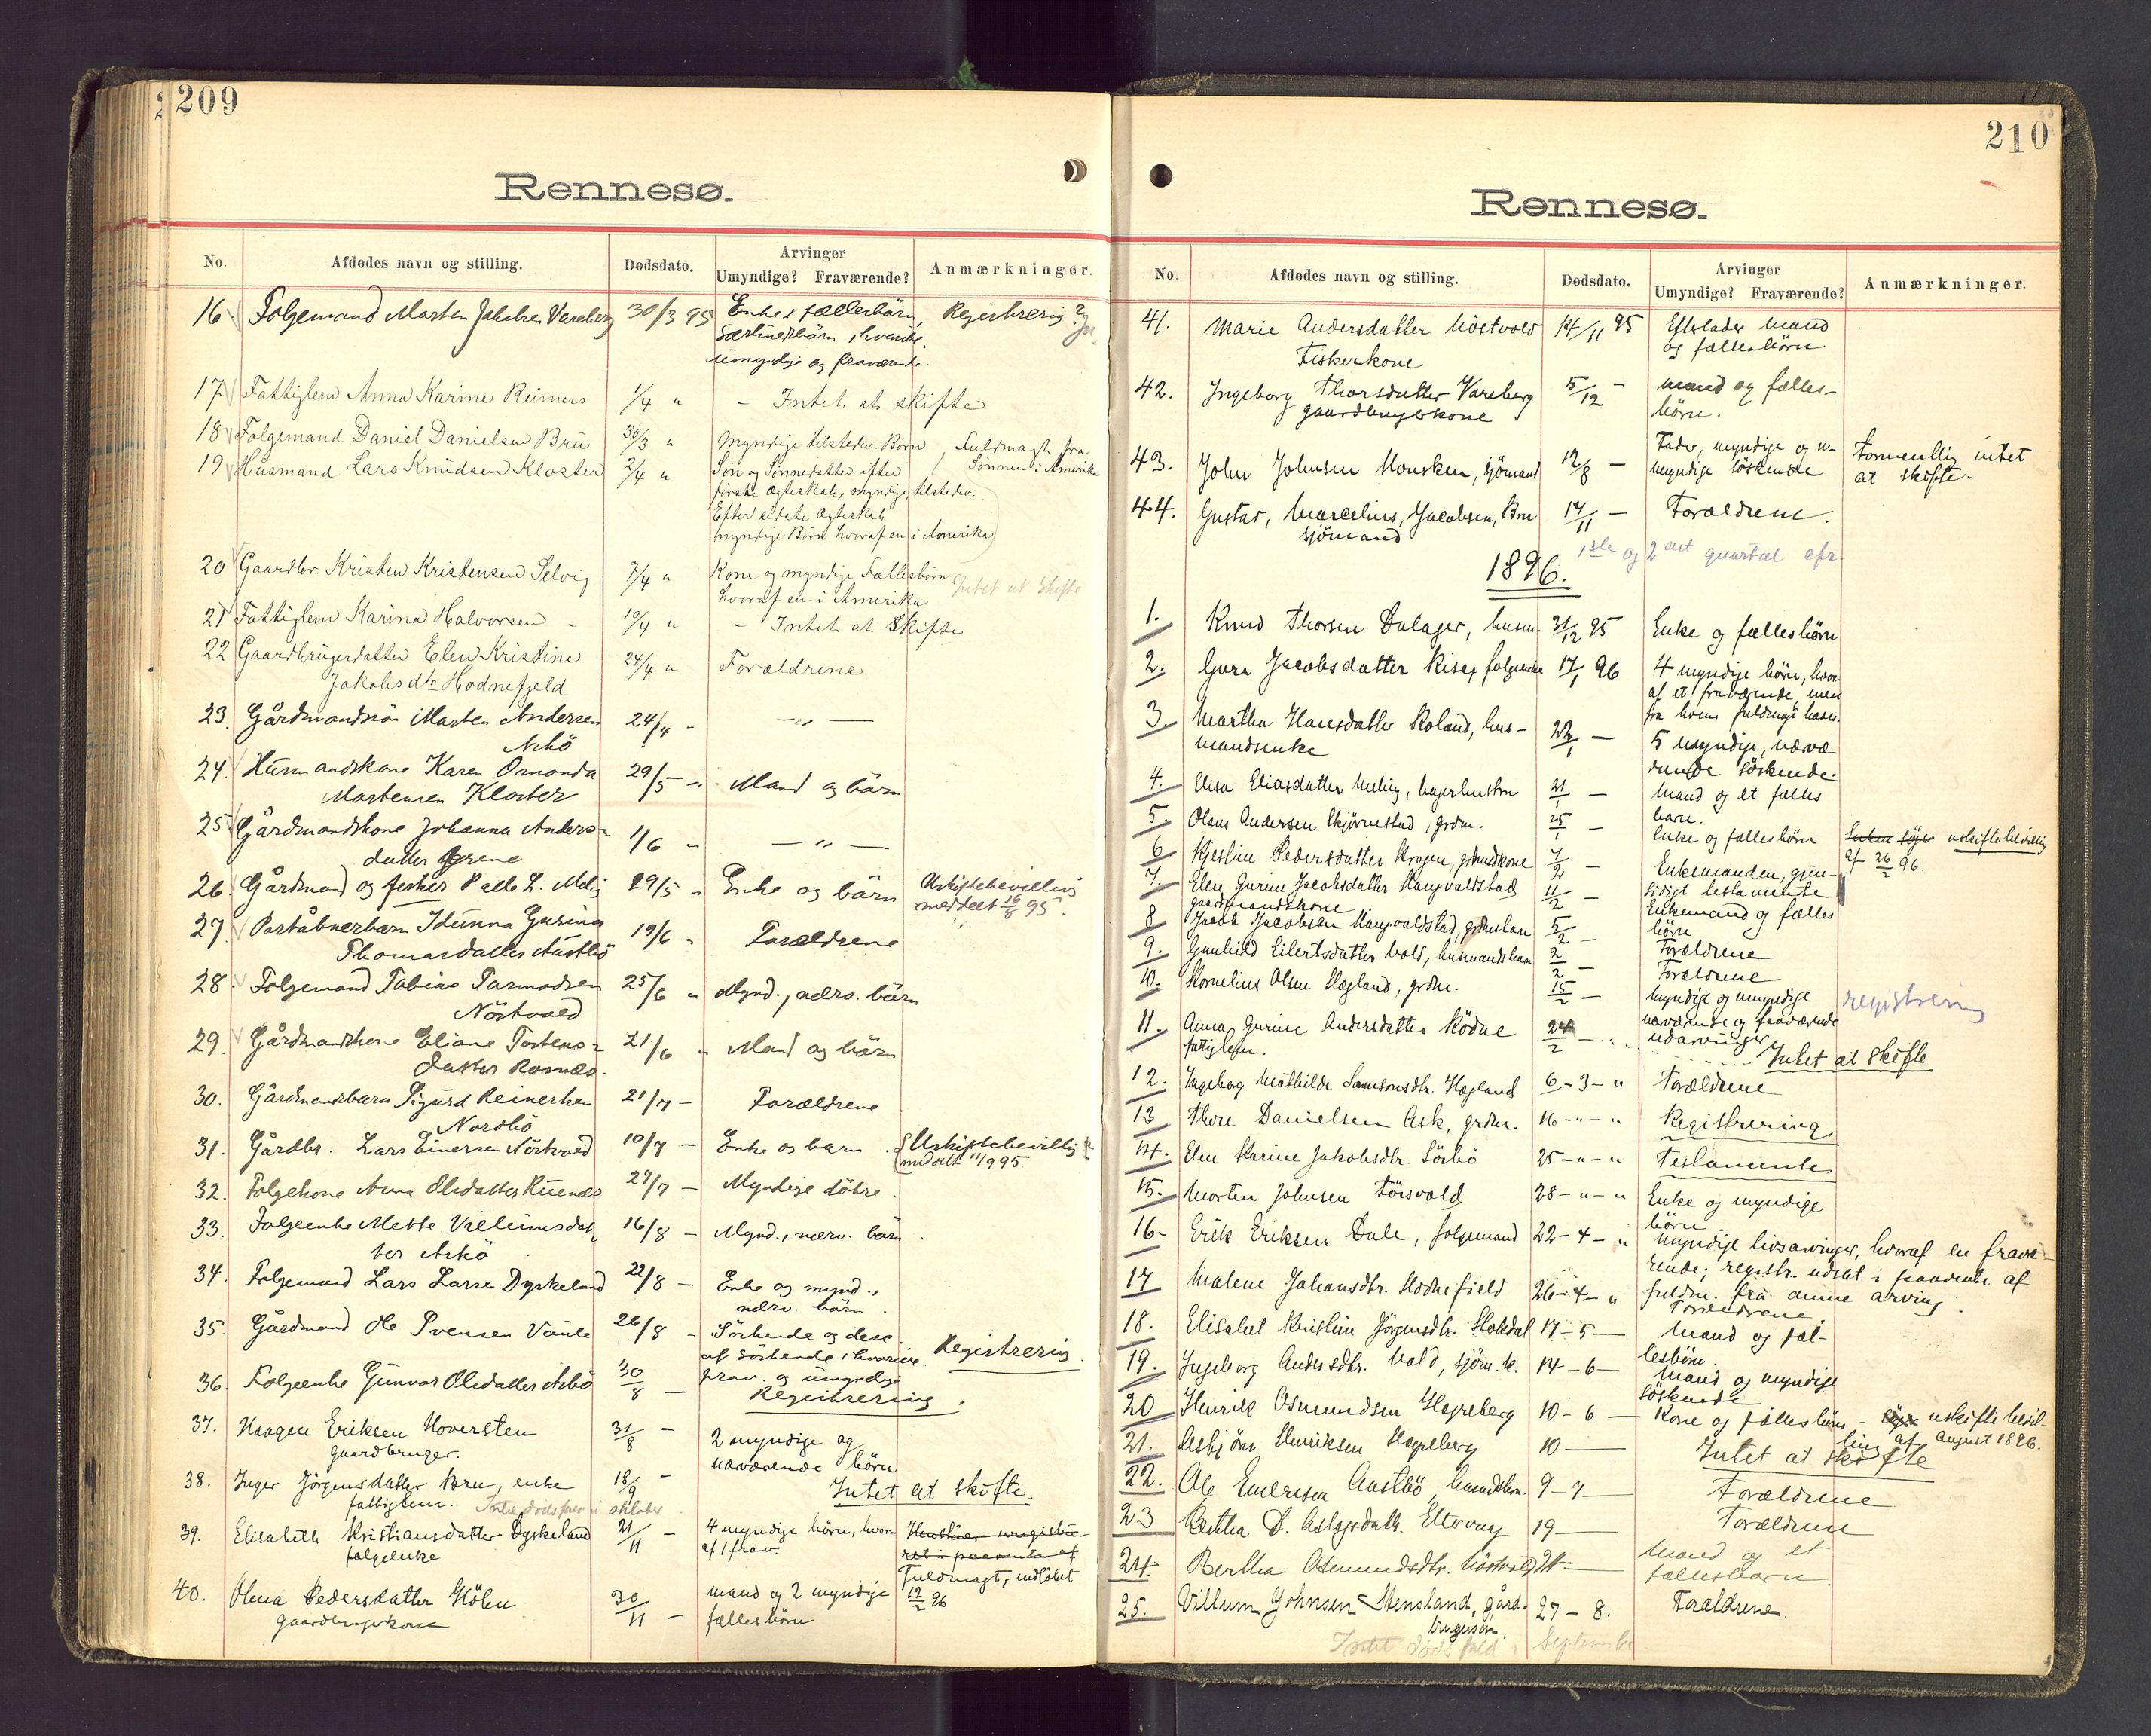 209
Rennesø.
No. Afdødes navn og stilling. Dødsdato. Arvinger Umyndige? Fraværende? Anmærkninger.
16. Folgemand Morten Jakobsen Vareberg 30/3 95 Enke, fællesbørn, Registrering?
særkuldbørn, hvoraf
umyndige og fraværende.
17 Fattiglem Anna Karine Reimers 1/4 " - Intet at skifte
18 Folgemand Daniel Danielsen Bru 30/3 " Myndige tilstedev. Børn, Fuldmagt fra
Sønnen i Amerika
19 Husmand Lars Knudsen Kloster 2/4 " Søn og Sønnedatter efter
første Ægteskab, myndige, tilstedev.
Efter sidste Ægteskab
myndige Børn hvoraf en i Amerika
20 Gaardbr. Kristen Kristensen Selvig 7/4 " Kone og myndige Fællesbørn
hvoraf en i Amerika Intet at skifte
21 Fattiglem Karina Halvorsen - 10/4 " - Intet at Skifte
22 Gaardbrugerdatter Elen Kristine 24/4 " Forældrene
Jakobsdtr Hodnefjeld
23. Gårdmandsøn Morten Andersen 24/4 - — " —
Askø
24. Husmandskone Karen Omonda 29/5 - " Mand og børn
Mortensen Kloster
25 Gårdmandskone Johanna Anders- 1/6 " — " —
datter Grene
26. Gårdmand og fisker Palle L. Meling 29/5 " Enke og børn Uskiftebevilling
meddelt 16/8 95.
27. Poståbnerbarn Idunna Gurina 19/6 " Forældrene
Thomasdatter Austbø
28. Folgemand Tobias Tarmodsen 25/6 " Mynd., nærv. børn
Nöstvold
29. Gårdmandskone Eliane Torstens- 21/6 " Mand og børn
datter Rosnæs.
30. Gårdmandsbarn Sigurd Reinertsen 21/7 - Forældrene
Nordbø
31. Gårdbr. Lars Einersen Nöstvold 10/7 - Enke og barn. Uskiftebevilling
meddelt 11/9 95
32. Folgekone Anna Olsdatter 27/7 - Myndige døtre.
33. Folgeenke Mette Villumsdat- 16/8 - Mynd., nærv. børn.
ter Askø
34. Folgemand Lars Larsen Dyskeland 22/8 - Enke og mynd.,
nærv. børn.
35. Gårdmand Ole Svensen 26/8 - Søskende og desc.
af søskende, hvoraf Registrering.
frav. og umyndige
36. Folgeenke Gunvor Olsdatter Asbø 30/8 - Registrering.
37. Haagen Eriksen Hoversten 31/8 - 2 myndige og
gaardbruger. nærværende børn
38. Inger Jörgensdatter Bru, enke 18/9 - Intet at skifte.
fattiglem. Intet dødsfald i oktober
39. Elisabeth Kristiansdatter Dyskeland 21/11 - 4 myndige börn, hvor-
folgeenke af 1 frav. Fuldmagt, indløbet
12/2 96
40. Olena Pedersdatter Hölen 30/11 - mand og 2 myndige
gaardbrugerkone fællesbörn
210
Rennesø.
No. Afdødes navn og stilling. Dødsdato. Arvinger Umyndige? Fraværende? Anmærkninger.
41. Marie Andersdatter Nöstvold 14/11 95 Efterlader mand
Fiskerkone og fællesbörn
42. Ingeborg Thorsdatter Vareberg 5/12 - mand og fælles-
gaardbrugerkone börn.
43. John Johnsen Mousken, sjömand 12/8 - Fader, myndige og u- Formentlig intet
myndige söskende at skifte.
44. Gustav, Marcelius, Jacobsen, Bru 14/11 - Forældrene.
sjömand
1ste og 2det quartal
1896.
1. Knud Thorsen Dalager, husm. 31/12 95 Enke og fællesbörn
2. Gjøra Jacobsdatter Risa, folgeenke 17/1 96 4 myndige börn, hvor-
af et fraværende, men
fra hvem fuldmagt haves.
3. Martha Hansdatter Roland, hus- 22/1 - 5 myndige, nærvæ-
mandsenke rende söskende.
4. Elisa Eliasdatter Meling, bagerhustru 21/1 - Mand og et fælles
barn.
5. Olaus Andersen Skjörnestad, grdm. 25/1 - Enke og fællesbörn uskiftebevilling
af 26/2 96.
6 Kjerstine Pedersdatter Kragen, grdmdskone 7/2 - Enkemanden, gjen-
sidigt testamente
7. Elen Gurine Jacobsdatter Haugvaldstad 11/2 - Enkemand og fælles
gaardmandskone börn
8 Jacob Jacobsen Haugvaldstad, grdmsbarn 5/2 - Forældrene
9. Gunhild Eilertsdatter Vold, husmandsbarn 2/2 - Forældrene
10. Kornelius Olsen Hægland, grdm. 15/2 - Myndige og umyndige registrering
nærværende og fraværende
udarvinger
11. Anna Gurine Andersdatter Rödne 24/2 - Intet at skifte
fattiglem.
12. Ingeborg Mathilde Samsonsdtr. Hægland 6-3-" Forældrene
13 Thore Danielsen Ask, grdm. 16-"-" Registrering
14. Elen Karine Jakobsdtr. Sörbö 25-"-" Testamente
15. Morten Johnsen Försvold 28-"-" Enke og myndige
börn
16. Erik Eriksen Dale, folgemand 22-4-" myndige livsarvinger, hvoraf en fravæ-
rende; registr. udsat i paavente af
fuldm. fra denne arving.
17 Malene Johansdtr. Hodnefjeld 26-4-" Forældrene.
18. Elisabet Kristine Jörgensdtr. Stokdal 17-5- Mand og fæl-
lesbörn.
19. Ingeborg Andersdtr. Vold, sjöm.k. 14-6- Mand og myndige
söskende
20 Henrik Osmundsen Hegreberg 10-6- Kone og fællesbörn - uskiftebevil-
ling af August 1896.
21. Asbjörn Henriksen Hegreberg 10 — Intet at skifte
22. Ole Einersen Austbö, husmdsbrn. 9-7 — Forældrene
23 Bertha D. Aslagsdatt. Eltervag 19 — Forældrene
24. Bertha Osmundsdtr. Nöstvold 24 - Mand og et
fællesbarn.
25. Villum Johnsen Stensland, gård- 27-8. Forældrene.
brugersøn.
Intet dødsfald i September